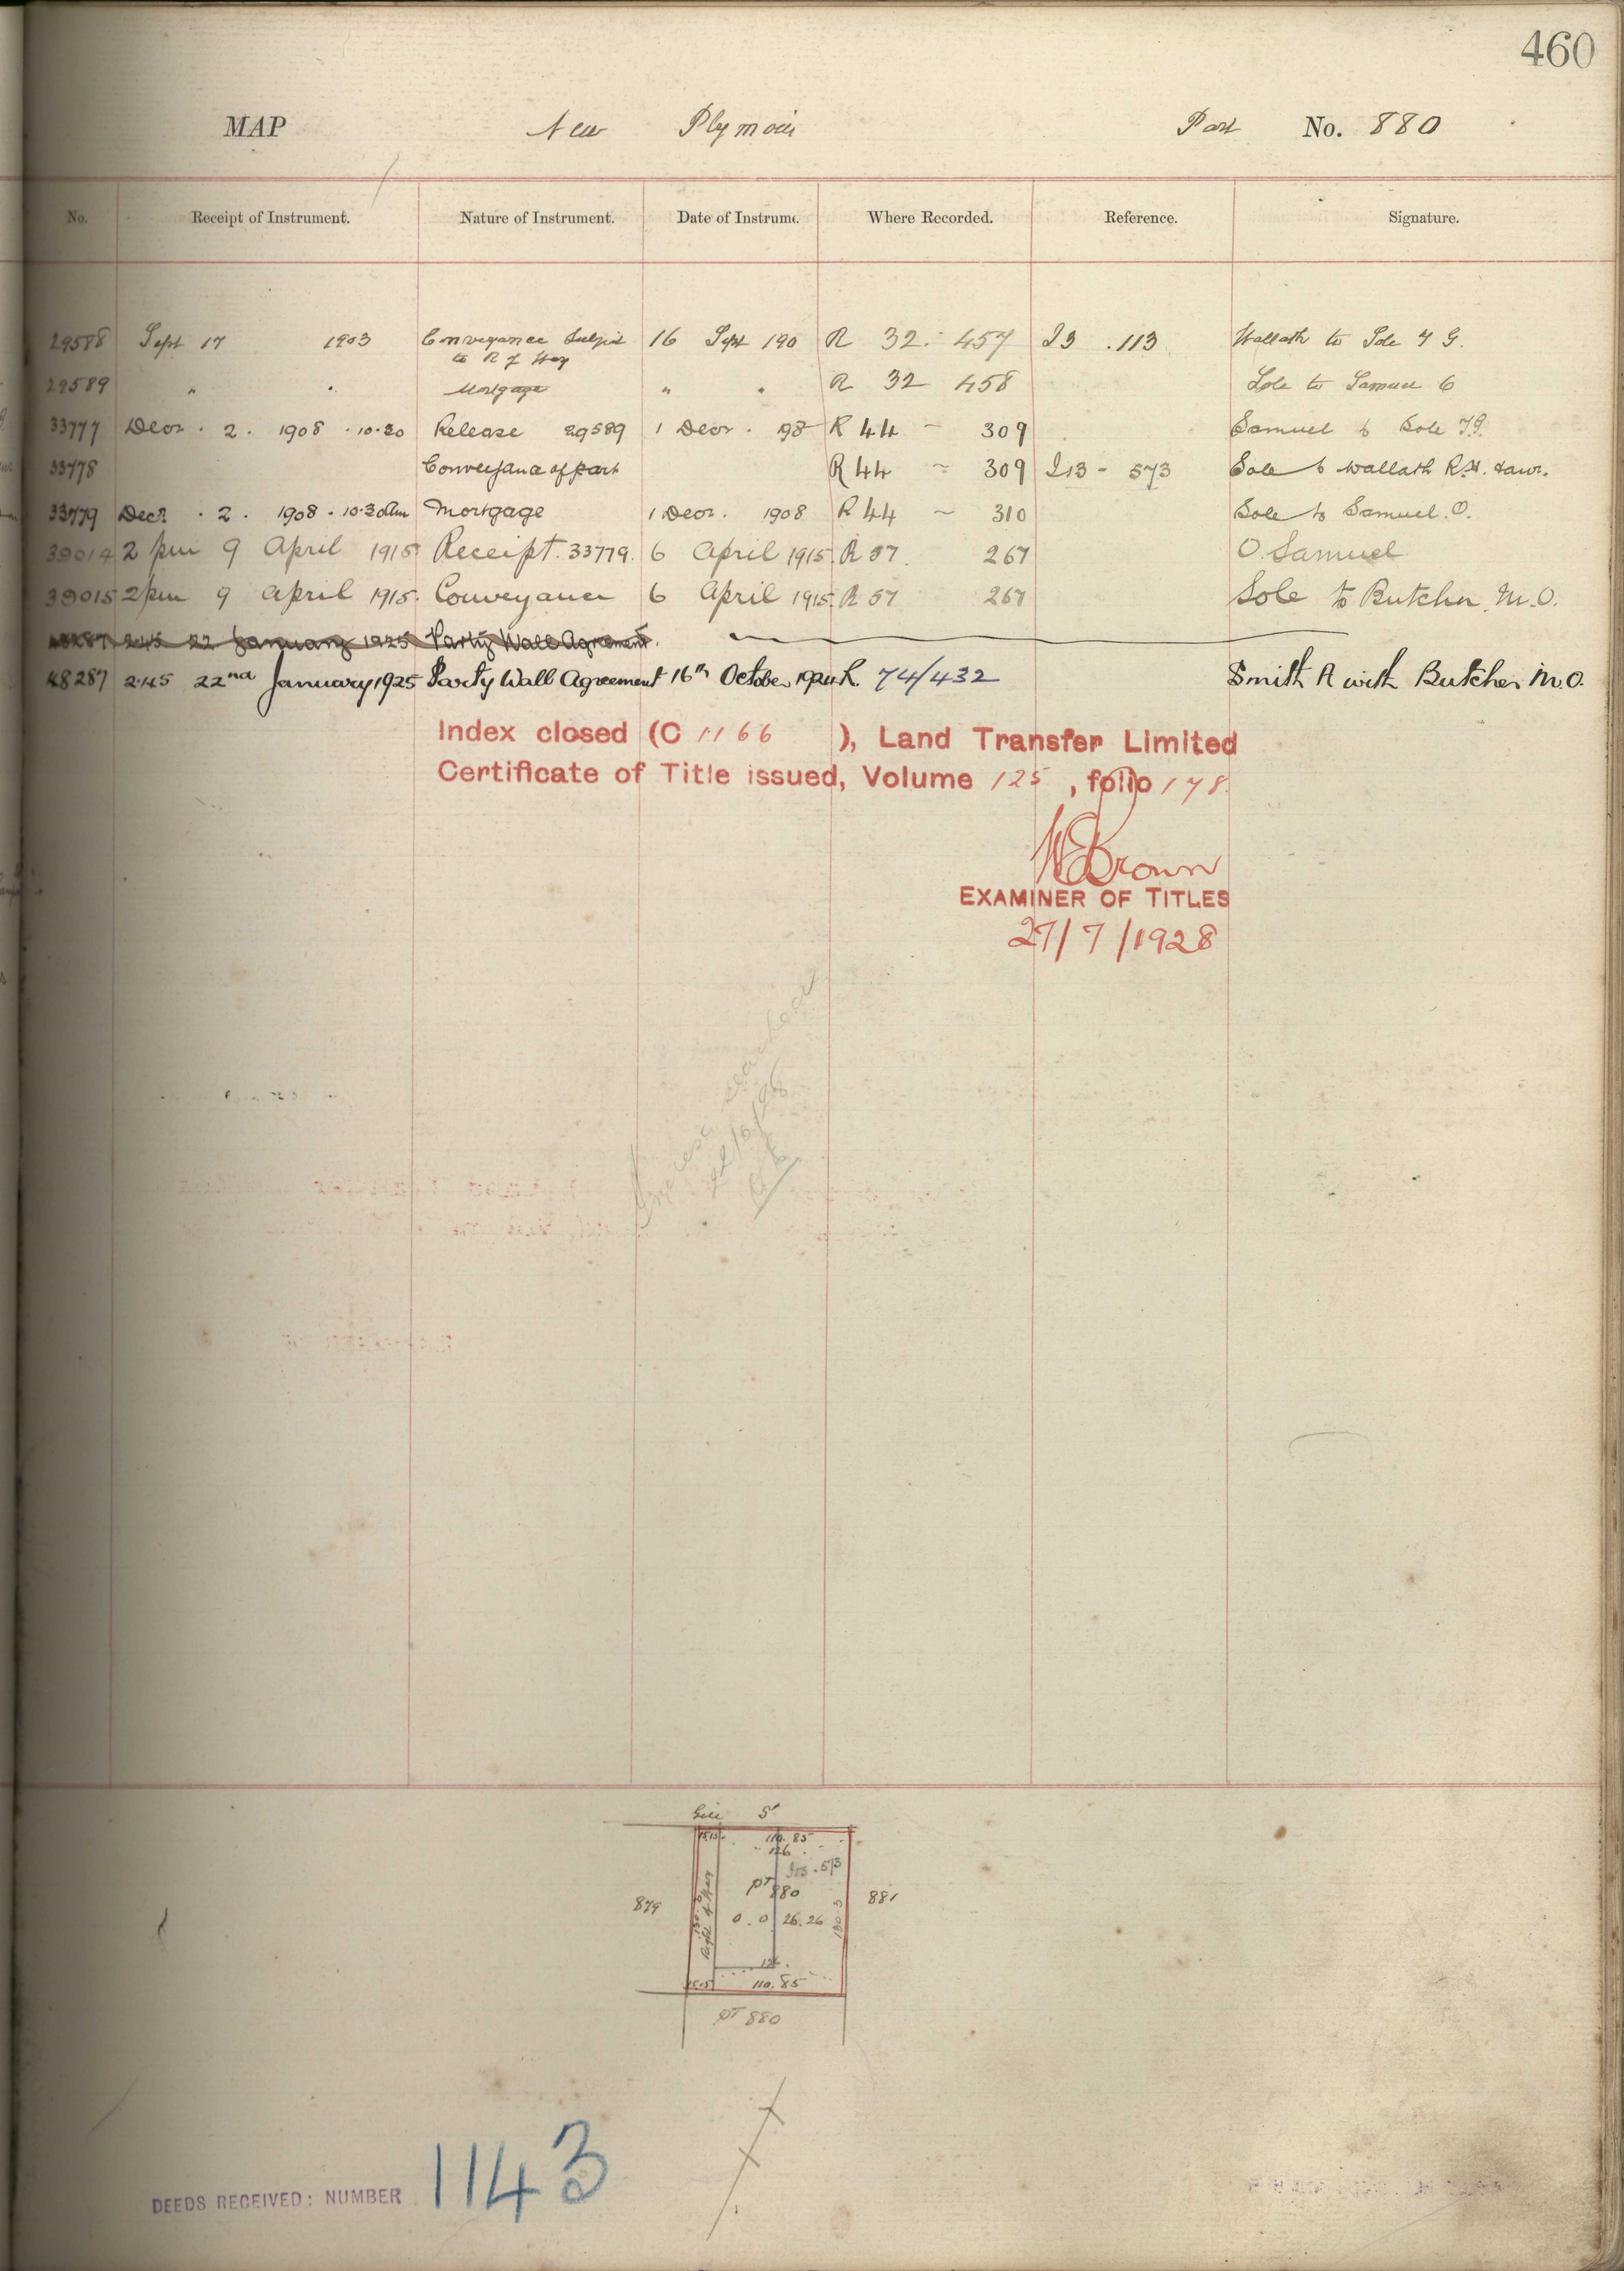 460
MAP New Plymouth Part No. 880
No. Receipt of Instrument. Nature of Instrument. Date of Instrumt. Where Recorded. Reference. Signature.
29588 Sept 17 1903 Conveyance Subject 16 Sept 190 R 32. 457 I3 .113 Wallath to Sole T G.
to R of Way
29589 " " Mortgage " " R 32 458 Sole to Samuel O
33777 Decr. 2. 1908 . 10.30 Release 29589 1 Decr. 98 R 44 ~ 309 Samuel to Sole T.G.
33778 Conveyance of part R 44 ~ 309 I13 - 573 Sole to Wallath R.H.
33779 Decr. 2. 1908 . 10.30am Mortgage 1 Decr. 1908 R 44 ~ 310 Sole to Samuel. O.
39014 2 pm 9 April 1915 Receipt. 33779. 6 April 1915. R 57. 267 O. Samuel.
39015 2 pm 9 April 1915. Conveyance 6 April 1915. R 57 267 Sole to Butcher M.O.
48287 2.45 22 January 1925 Party Wall Agreement.
48287 2.45 22nd January 1925 Party Wall Agreement 16th October 1924 R. 74/432 Smith A with Butcher M.O.
Index closed (C 1166 ), Land Transfer Limited
Certificate of Title issued, Volume 125 , folio 178.
Brown
EXAMINER OF TITLES
27/7/1928
Gill St
15.15 110.85
126
I13.573
pt 880
879 881
0.0 26.26
Right of Way
130.3
126.
15.15 110.85
pt 880
DEEDS RECEIVED: NUMBER 1143